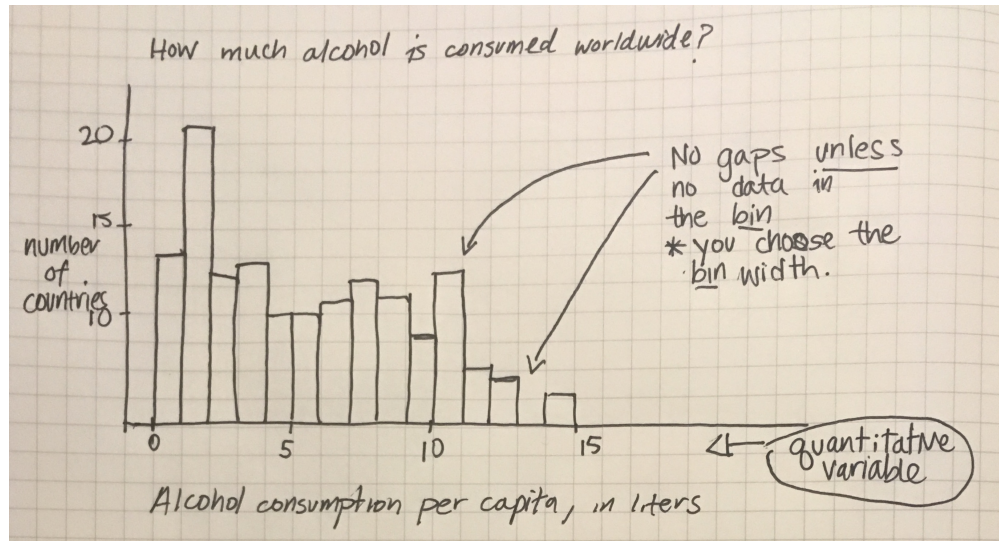 How much alcohol is consumed worldwide?
20
15
10
number
of
countries
No gaps unless
no data in
the bin
* you choose the
bin width.
0 5 10 15
quantitative
variable
Alcohol consumption per capita, in liters